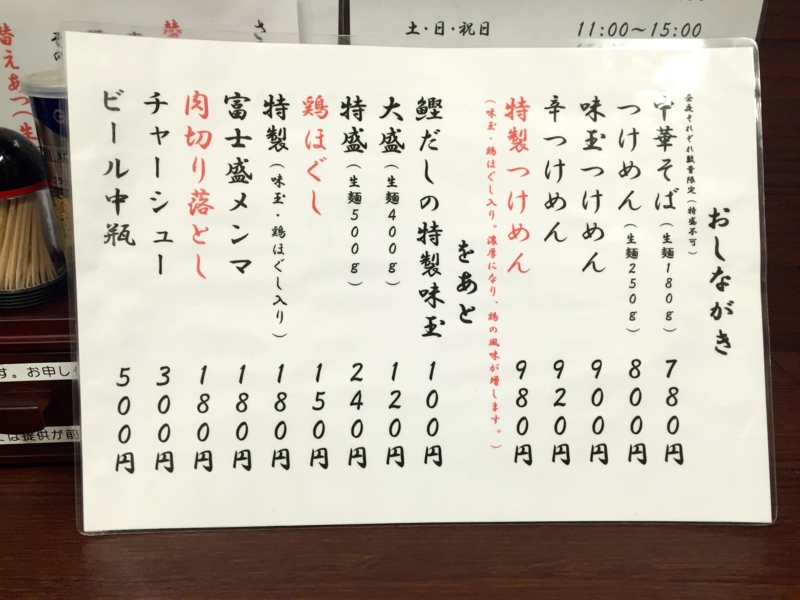 土・日・祝日
11:00～15:00
おしながき
昼夜それぞれ数量限定(特盛不可)
中華そば(生麺180g) 780円
つけめん(生麺250g) 800円
味玉つけめん 900円
辛つけめん 920円
特製つけめん 980円
(味玉・鶏ほぐし入り。濃厚になり、鶏の風味が増します。)
をあと
鰹だしの特製味玉 100円
大盛(生麺400g) 120円
特盛(生麺500g) 240円
鶏ほぐし 150円
特製(味玉・鶏ほぐし入り) 180円
富士盛メンマ 180円
肉切り落とし 180円
チャーシュー 300円
ビール中瓶 500円
替えあつ(生
す。お申し
は提供が前